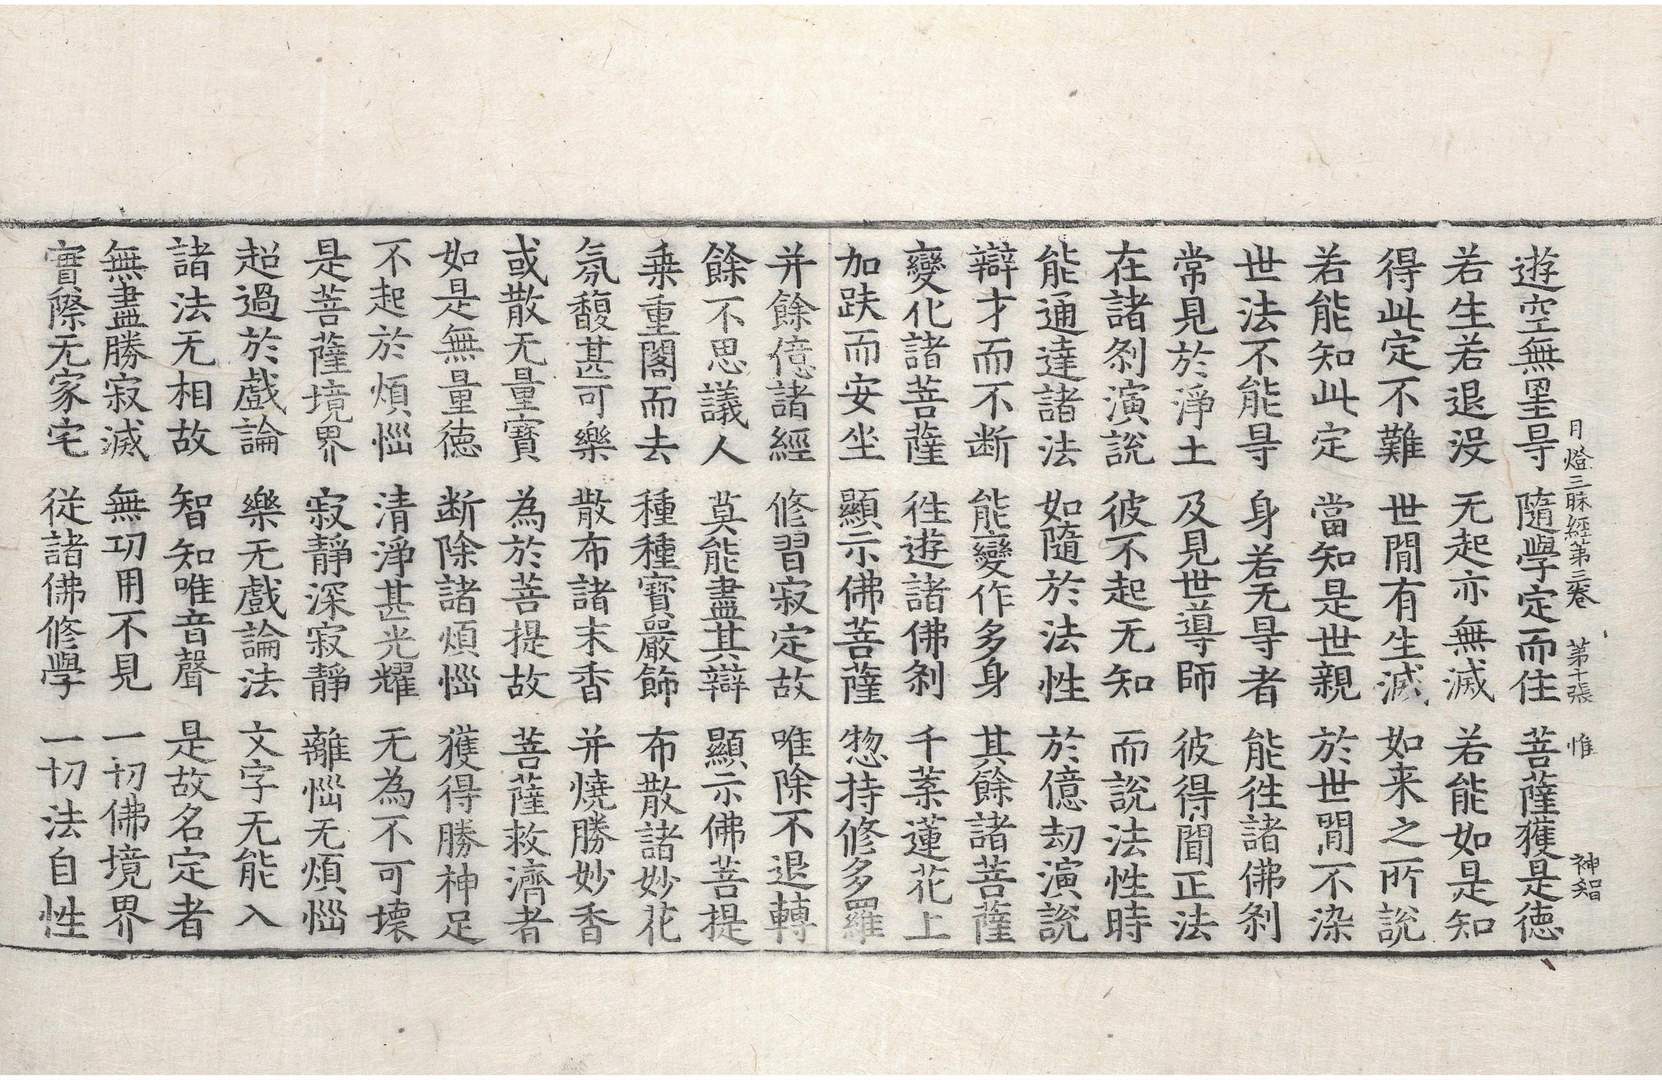 月燈三昧經第三卷　第十張　惟　神智
遊空無罣㝵　隨學定而住　菩薩獲是德
若生若退没　无起亦無滅　若能如是知
得此定不難　世閒有生滅　如来之所說
若能知此定　當知是世親　於世閒不染
世法不能㝵　身若无㝵者　能徃諸佛刹
常見於淨土　及見世導師　彼得聞正法
在諸刹演說　彼不起无知　而說法性時
能通達諸法　如隨於法性　於億劫演說
辯才而不断　能變作多身　其餘諸菩薩
變化諸菩薩　徃遊諸佛刹　千葉蓮花上
加趺而安坐　顯示佛菩薩　惣持修多羅
并餘億諸經　修習寂定故　唯除不退轉
餘不思議人　莫能盡其辯　顯示佛菩提
乗重閣而去　種種寶嚴飾　布散諸妙花
氛馥甚可樂　散布諸末香　并燒勝妙香
或散无量寶　為於菩提故　菩薩救濟者
如是無量德　断除諸煩惱　獲得勝神足
不起於煩惱　清淨甚光耀　无為不可壞
是菩薩境界　寂靜深寂靜　離惱无煩惱
超過於戲論　樂无戲論法　文字无能入
諸法无相故　智知唯音聲　是故名定者
無盡勝寂滅　無功用不見　一切佛境界
實際无家宅　從諸佛修學　一切法自性